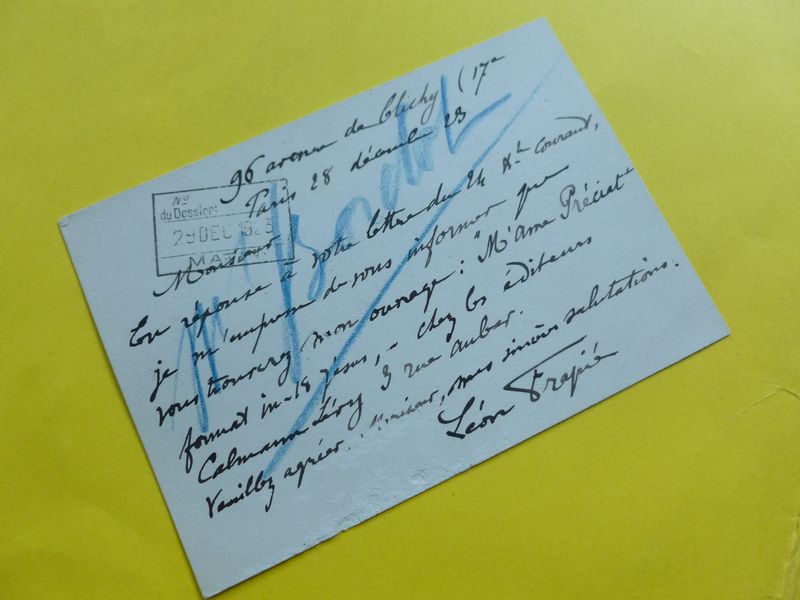 96 avenue de Clichy (17e
Paris 28 décemb 23
No
du Dossier:
29 DEC 1923
Monsieur
En réponse à votre lettre du 24 Ct courant,
je m'empresse de vous informer que
vous trouverez mon ouvrage : "M'ame Préciat"
format in-18 jésus, - chez les éditeurs
Calmann Lévy 3 rue Auber.
Veuillez agréer, Monsieur, mes sincères salutations.
Léon Frapié